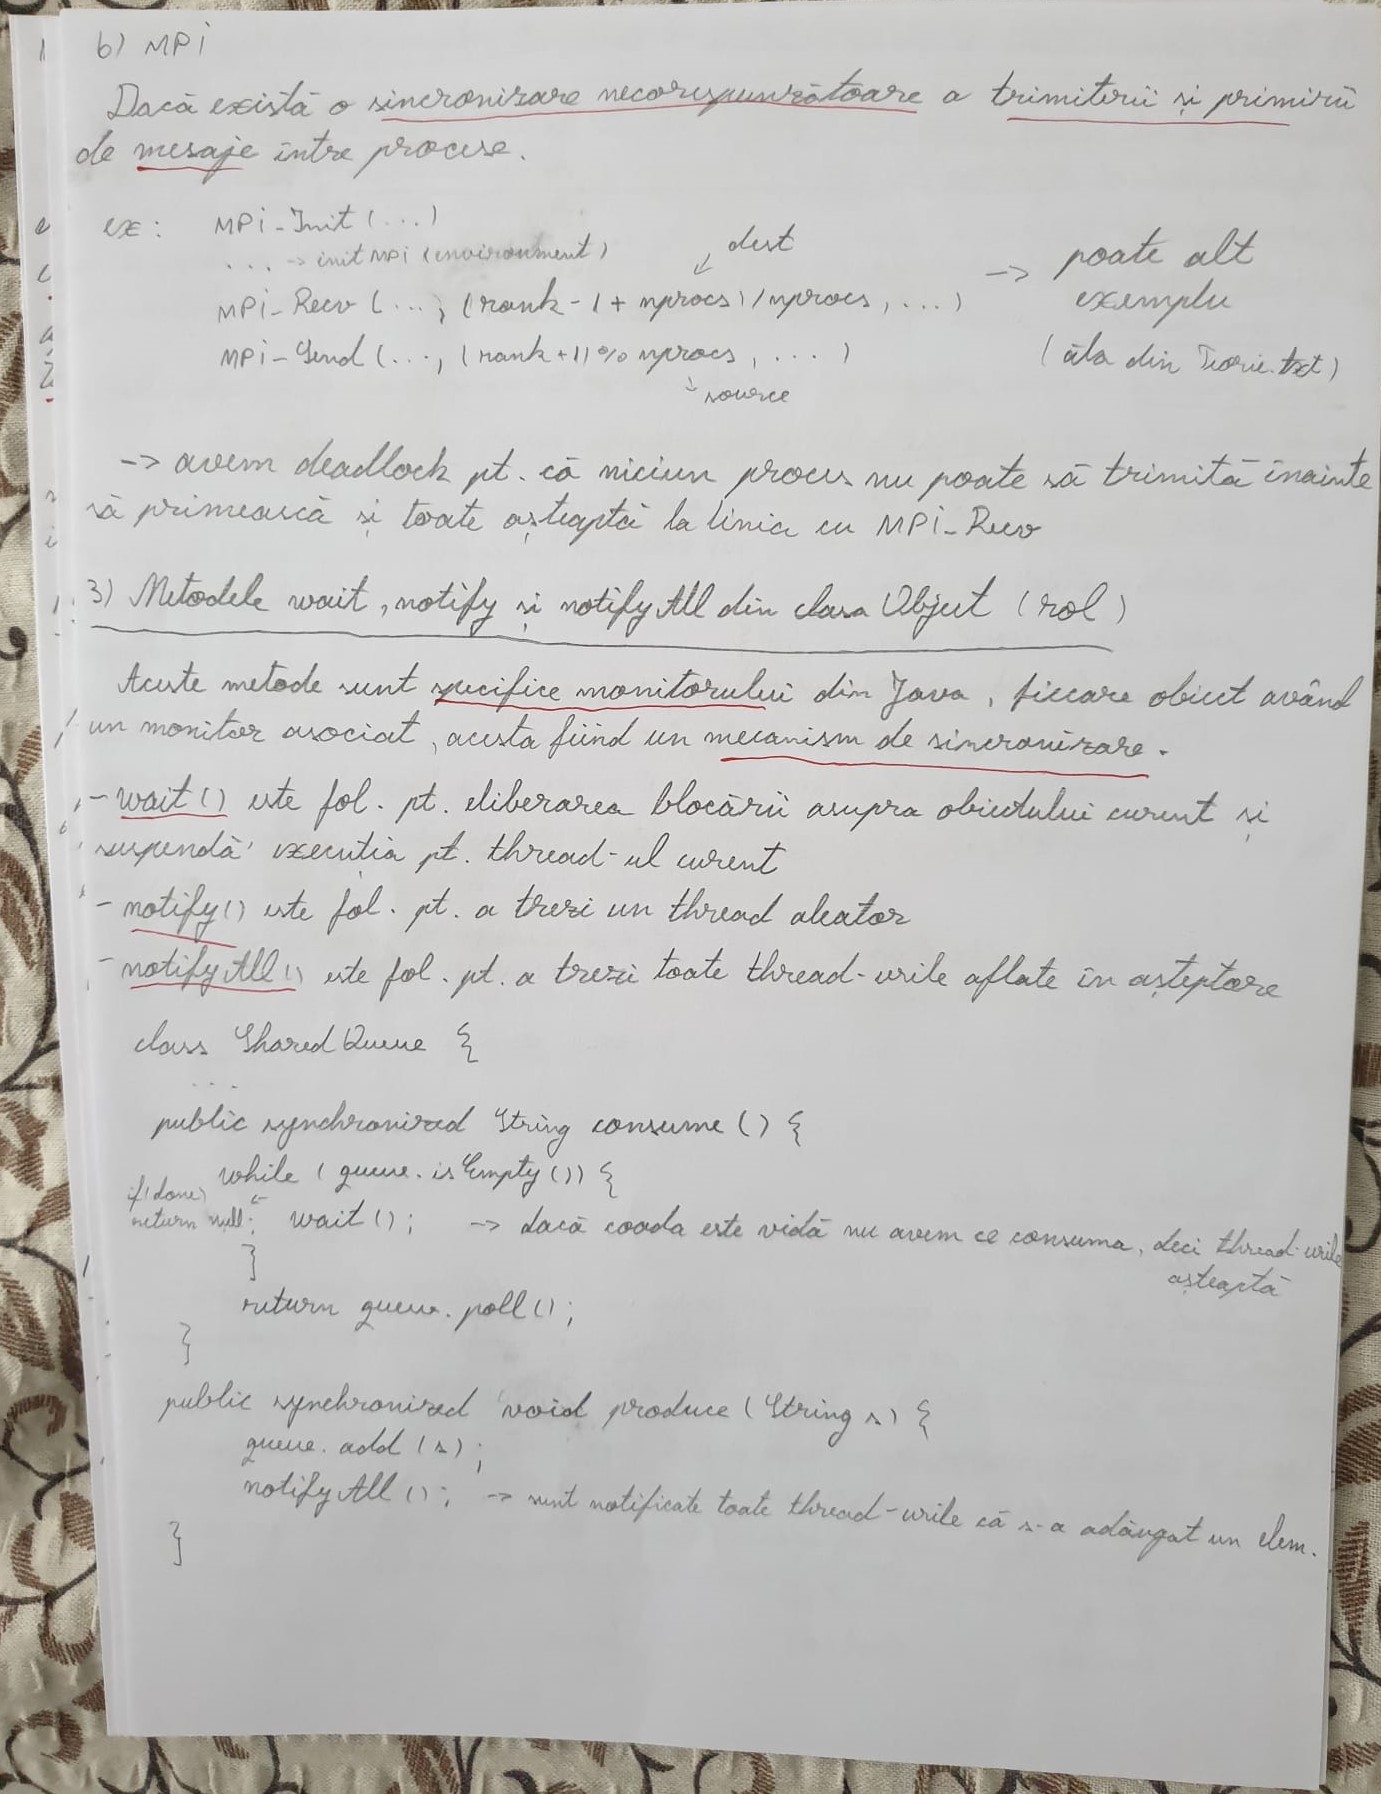 b) MPi
Dacă există o sincronizare necorespunzătoare a trimiterii și primirii
de mesaje între procese.
ex: MPi_Init (...)
... -> init MPi (environment)
dest
MPi_Recv (..., (rank-1 + nprocs)/nprocs, ...)
-> poate alt
exemplu
MPi_Send (..., (rank+1)% nprocs, ...)
(ăla din Teorie.txt)
source
-> avem deadlock pt. că niciun proces nu poate să trimită înainte
să primească și toate așteaptă la linia cu MPi_Recv
3) Metodele wait, notify și notifyAll din clasa Object (rol)
Aceste metode sunt specifice monitorului din Java, fiecare obiect având
un monitor asociat, acesta fiind un mecanism de sincronizare.
- wait() este fol. pt. eliberarea blocării asupra obiectului curent și
suspendă execuția pt. thread-ul curent
- notify() este fol. pt. a trezi un thread aleator
- notifyAll() este fol. pt. a trezi toate thread-urile aflate în așteptare
class SharedQueue {
...
public synchronized String consume () {
while (queue.isEmpty()) {
if(done)
return null; <- wait(); -> dacă coada este vidă nu avem ce consuma, deci thread-urile
așteaptă
}
return queue.poll();
}
public synchronized void produce (String s) {
queue.add(s);
notifyAll(); -> sunt notificate toate thread-urile că s-a adăugat un elem.
}